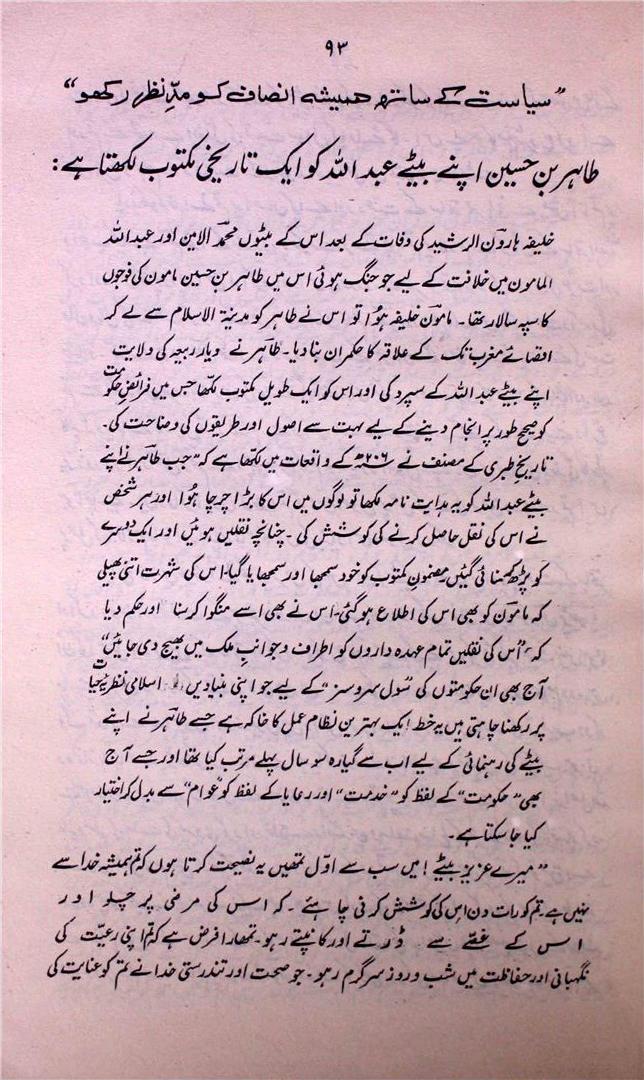 ۹۳
”سیاست کے ساتھ ہمیشہ انصاف کو مدِّ نظر رکھو“
طاہر بن حسین اپنے بیٹے عبد اللہ کو ایک تاریخی مکتوب لکھتا ہے:
خلیفہ ہارون الرشید کی وفات کے بعد اس کے بیٹوں محمد الامین اور عبد اللہ
المامون میں خلافت کے لیے جو جنگ ہوئی اس میں طاہر بن حسین مامون کی فوجوں
کا سپہ سالار تھا۔ مامون خلیفہ ہوُا تو اس نے طاہر کو مدینۃ الاسلام سے لے کر
اقصائے مغرب تک کے علاقہ کا حکمران بنا دیا۔ طاہر نے دیارِ ربیعہ کی ولایت
اپنے بیٹے عبد اللہ کے سپرد کی اور اس کو ایک طویل مکتوب لکھا جس میں فرائضِ حکومت
کو صحیح طور پر انجام دینے کے لیے بہت سے اصول اور طریقوں کی وضاحت کی۔
تاریخِ طبری کے مصنف نے ۲۰۶ھ کے واقعات میں لکھا ہے کہ ”جب طاہر نے اپنے
بیٹے عبد اللہ کو یہ ہدایت نامہ لکھا تو لوگوں میں اس کا بڑا چرچا ہوُا اور ہر شخص
نے اس کی نقل حاصل کرنے کی کوشش کی۔ چنانچہ نقلیں ہوئیں اور ایک دوسرے
کو پڑھ کر سنائی گئیں مضمونِ مکتوب کو خود سمجھا اور سمجھایا گیا۔ اس کی شہرت اتنی پھیلی
کہ مامون کو بھی اس کی اطلاع ہو گئی۔ اس نے بھی اسے منگوا کر سنا اور حکم دیا
کہ ”اُس کی نقلیں تمام عہدہ داروں کو اطراف و جوانبِ ملک میں بھیج دی جائیں“
آج بھی ان حکومتوں کی ”سول سروسز“ کے لیے جو اپنی بنیادیں اسلامی نظریۂ حیات
پر رکھنا چاہتی ہیں یہ خط ایک بہترین نظامِ عمل کا خاکہ ہے جسے طاہر نے اپنے
بیٹے کی رہنمائی کے لیے اب سے گیارہ سو سال پہلے مرتب کیا تھا اور جسے آج
بھی ”حکومت“ کے لفظ کو ”خدمت“ اور رعایا کے لفظ کو ”عوام“ سے بدل کر اختیار
کیا جا سکتا ہے۔
”میرے عزیز بیٹے! میں سب سے اوّل تمھیں یہ نصیحت کرتا ہوں کہ تم ہمیشہ خدا سے
نہیں ہے۔ تم کو رات دن اس کی کوشش کرنی چاہئے۔ کہ اس کی مرضی پر چلو اور
اس کے غصّے سے ڈرتے اور کانپتے رہو۔ تمھارا فرض ہے کہ تم اپنی رعیّت کی
نگہبانی اور حفاظت میں شب و روز سرگرم رہو۔ جو صحت اور تندرستی خدا نے تم کو عنایت کی